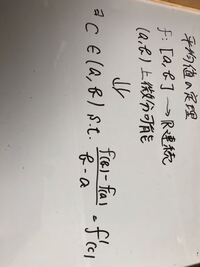 平均値の定理
f: [a, b] → R 連続
(a, b) 上微分可能
⇓
∃ C ∈ (a, b) s.t. \frac{f(b) - f(a)}{b - a} = f'(c)